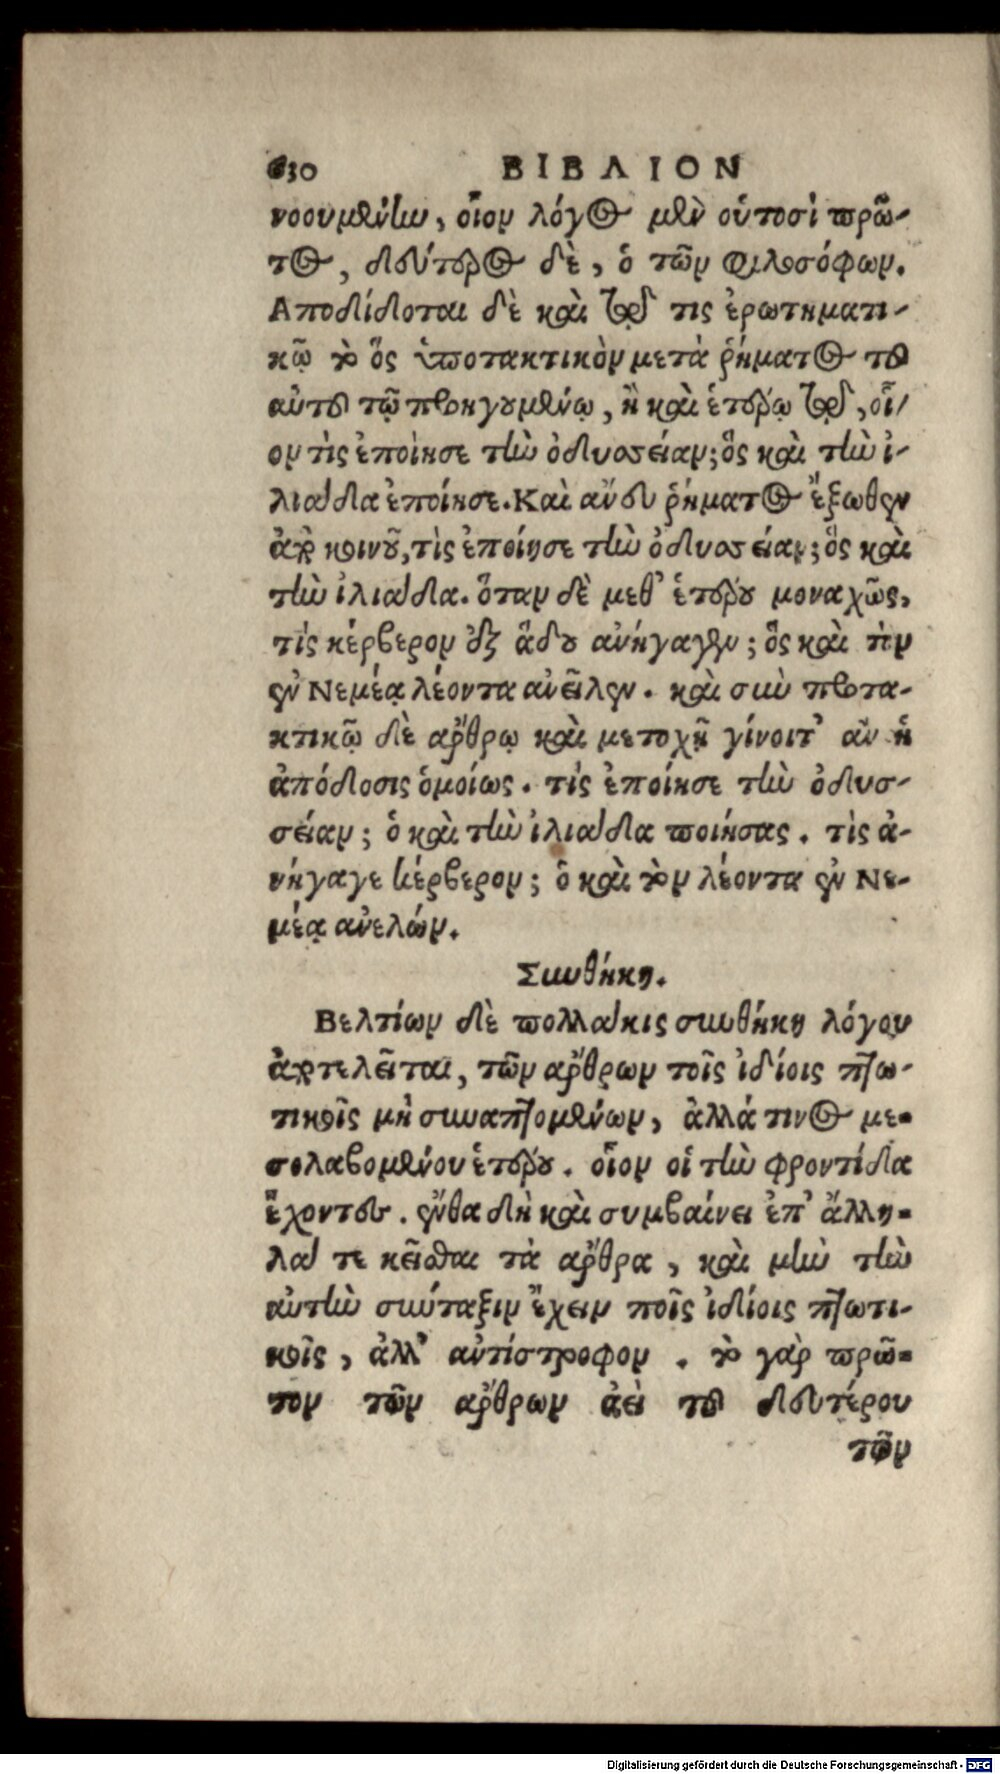 630 ΒΙΒΛΙΟΝ
νοουμένην, οἷον λόγος μὲν οὑτοσὶ πρῶ-
τος, δεύτερος δὲ, ὁ τῶν φιλοσόφων.
Αποδίδοται δὲ καὶ τῷ τις ἐρωτηματι-
κῷ τὸ ὃς ὑποτακτικὸν μετὰ ῥήματος τοῦ
αὐτοῦ τῷ προηγουμένῳ, ἢ καὶ ἑτέρῳ του, οἷ-
ον τὶς ἐποίησε τὴν ὀδυσσείαν; ὃς καὶ τὴν ἰ-
λιάδα ἐποίησε. Καὶ ἄνευ ῥήματος ἔξωθεν
ἀπὸ κοινοῦ, τὶς ἐποίησε τὴν ὀδυσσείαν; ὃς καὶ
τὴν ἰλιάδα. ὅταν δὲ μεθ’ ἑτέρου μοναχῶς,
τίς κέρβερον ἐξ ἅδου ἀνήγαγεν; ὃς καὶ τὸν
ἐν Νεμέᾳ λέοντα ἀνεῖλεν. καὶ σὺν προτα-
κτικῷ δὲ ἄρθρῳ καὶ μετοχῇ γίνοιτ’ ἂν ἡ
ἀπόδοσις ὁμοίως. τίς ἐποίησε τὴν ὀδυσ-
σείαν; ὁ καὶ τὴν ἰλιάδα ποιήσας. τὶς ἀ-
νήγαγε κέρβερον; ὁ καὶ τὸν λέοντα ἐν Νε-
μέᾳ ἀνελών.
Συνθήκη.
Βελτίων δὲ πολλάκις συνθήκη λόγου
ἀποτελεῖται, τῶν ἄρθρων τοῖς ἰδίοις πτω-
τικοῖς μὴ συναπτομένων, ἀλλά τινος με-
σολαβομένου ἑτέρου. οἷον οἱ τὴν φροντίδα
ἔχοντες. ἔνθα δὴ καὶ συμβαίνει ἐπ’ ἄλλη-
λά τε κεῖσθαι τὰ ἄρθρα, καὶ μὴν τὴν
αὐτὴν σύνταξιν ἔχειν τοῖς ἰδίοις πτωτι-
κοῖς, ἀλλ’ ἀντίστροφον. τὸ γὰρ πρῶ-
τον τῶν ἄρθρων ἀεὶ τοῦ δευτέρου
τῶν
Digitalisierung gefördert durch die Deutsche Forschungsgemeinschaft - DFG